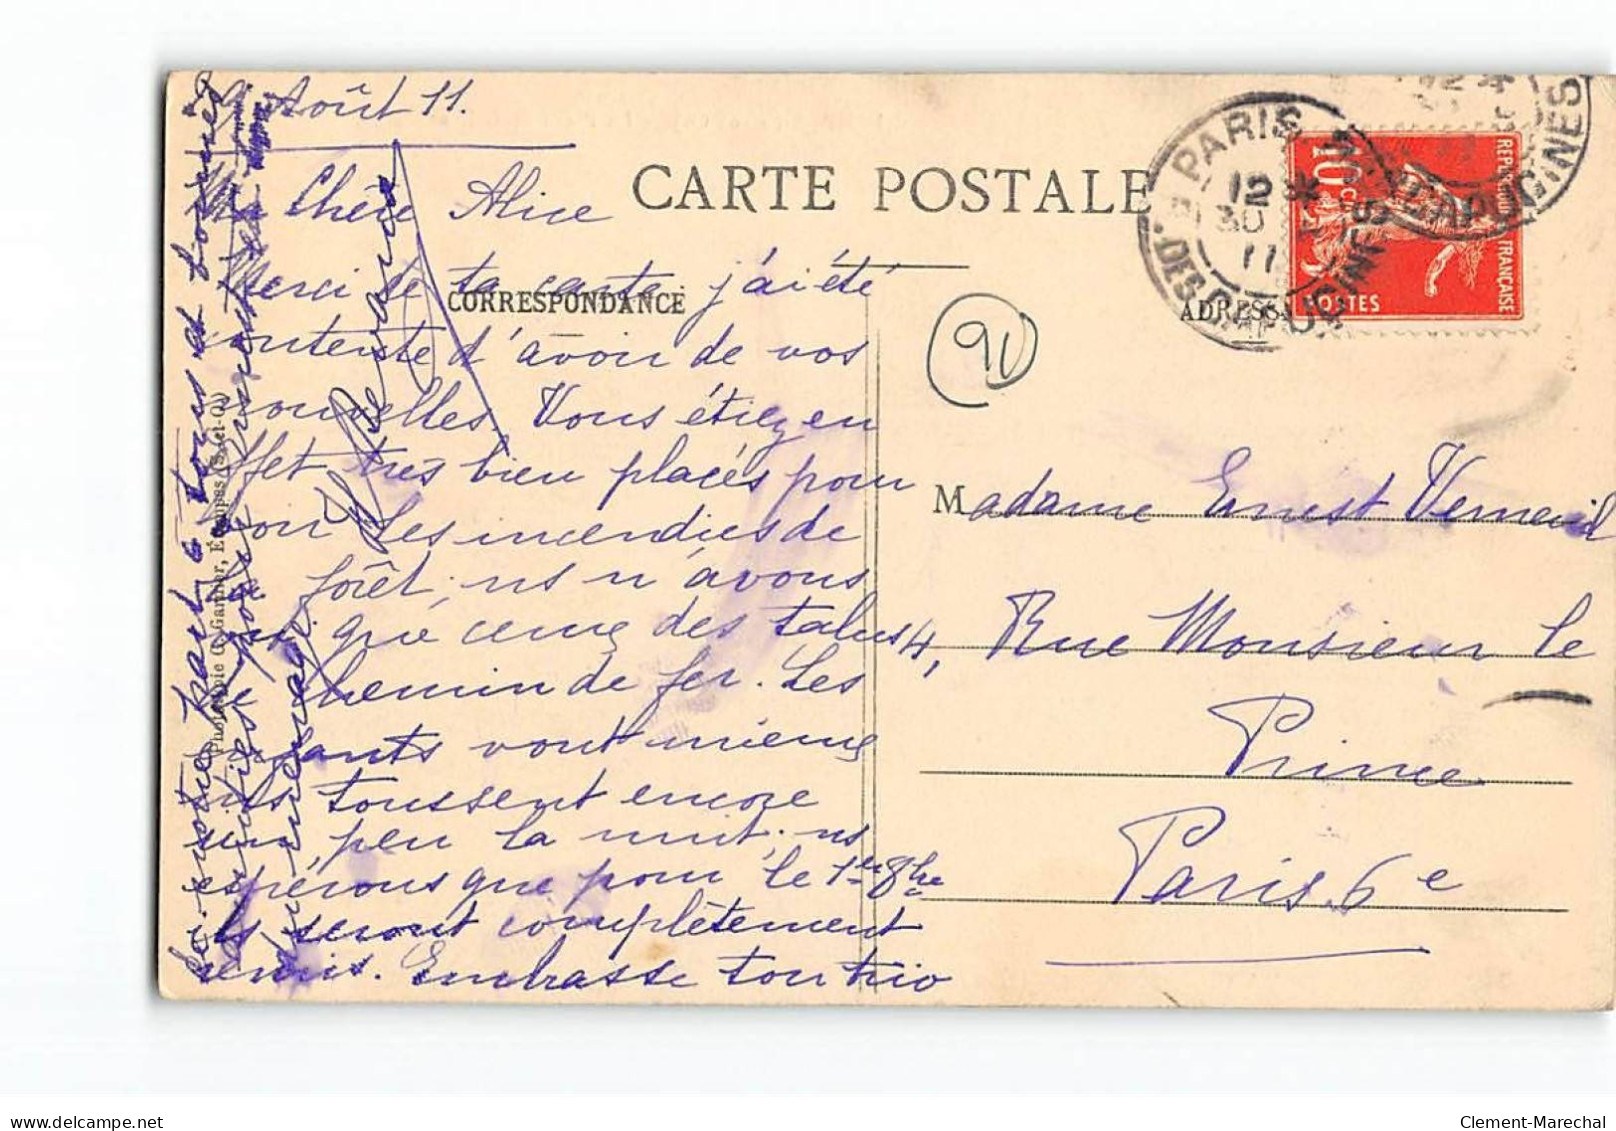 Août 11.
CARTE POSTALE
Ma Chère Alice
Merci de ta carte j'ai été
CORRESPONDANCE
contente d'avoir de vos
nouvelles. Vous étiez en
effet très bien placés pour
voir les incendies de
forêt; ns n'avons
que ceux des talus
de chemin de fer. Les
enfants vont mieux
ils toussent encore
un peu la nuit; ns
espérons que pour le 1er 8bre
ils seront complètement
remis. Embrasse ton trio
de notre part à tous et
pour
A. Revarie
Phototypie G. Garnier, Étampes (S.-et-O.)
ADRESSE
91
PARIS
12
30
11
DES CAPUCINES
PARIS
12
DES CAPUCINES
REPUBLIQUE FRANÇAISE
10 c
POSTES
Madame Ernest Verneuil
4, Rue Monsieur le
Prince
Paris 6e
Clement-Marechal